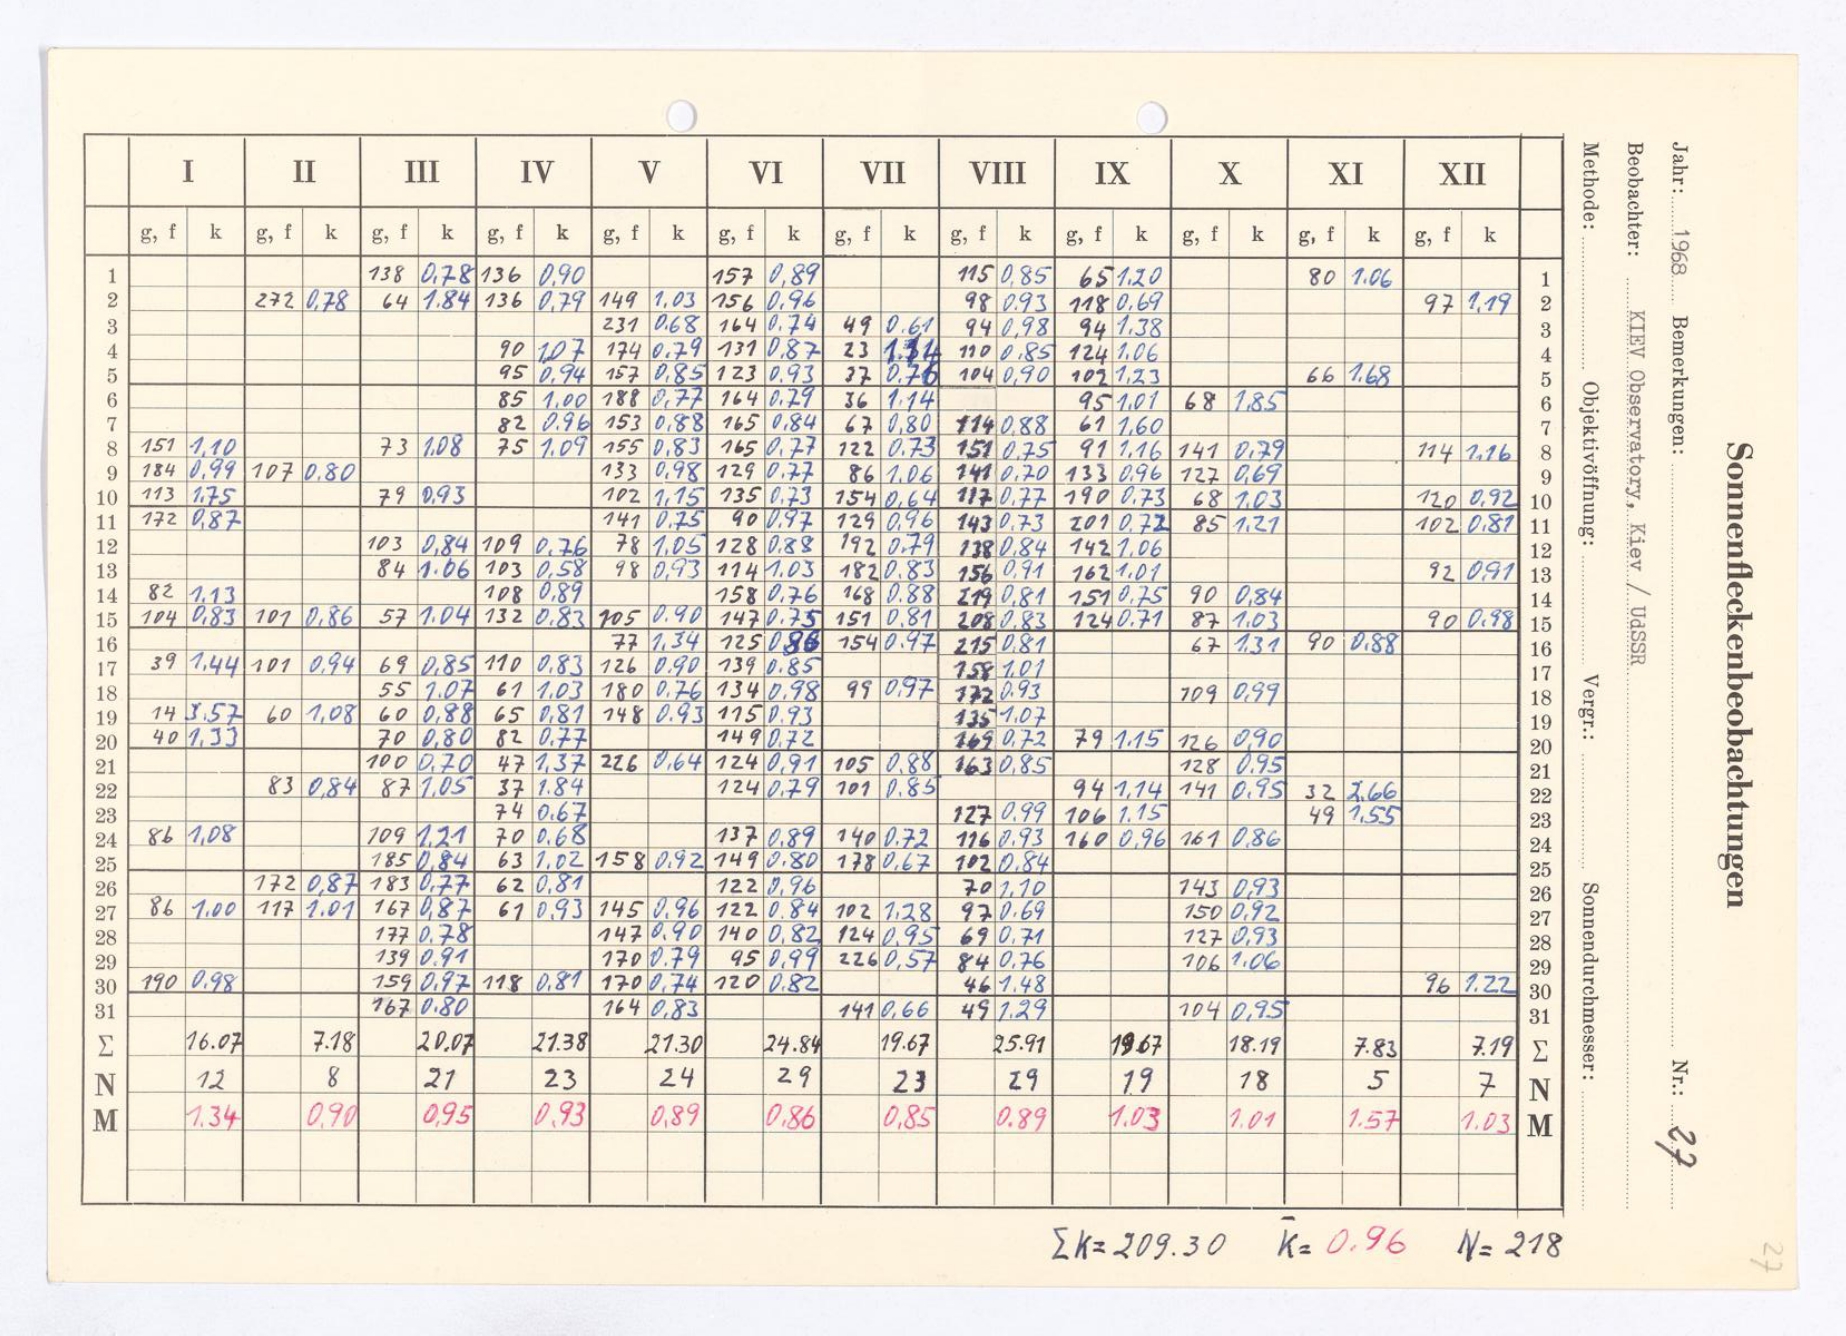 I II III IV V VI VII VIII IX X XI XII
g, f k g, f k g, f k g, f k g, f k g, f k g, f k g, f k g, f k g, f k g, f k g, f k
1 138 0,78 136 0,90 157 0,89 115 0,85 65 1,20 80 1.06 1
2 272 0,78 64 1.84 136 0,79 149 1,03 156 0,96 98 0.93 118 0.69 97 1,19 2
3 231 0.68 164 0.74 49 0.61 94 0,98 94 1.38 3
4 90 1,07 174 0.79 131 0,87 23 110 0.85 124 1.06 4
5 95 0,94 157 0,85 123 0,93 37 0.76 104 0,90 102 1,23 66 1,68 5
6 85 1,00 188 0,77 164 0.79 36 1.14 95 1,01 68 1,85 6
7 82 0.96 153 0,88 165 0,84 67 0,80 114 0,88 61 1,60 7
8 151 1,10 73 1,08 75 1.09 155 0,83 165 0,77 122 0.73 151 0,75 91 1,16 141 0,79 114 1,16 8
9 184 0,99 107 0.80 133 0,98 129 0,77 86 1.06 141 0,70 133 0,96 127 0,69 9
10 113 1,75 79 0,93 102 1,15 135 0,73 154 0,64 117 0,77 190 0,73 68 1,03 120 0,92 10
11 172 0,87 141 0,75 90 0,97 129 0,96 143 0,73 201 0,72 85 1,21 102 0.81 11
12 103 0,84 109 0,76 78 1,05 128 0.88 192 0,79 138 0,84 142 1.06 12
13 84 1.06 103 0,58 98 0,93 114 1.03 182 0.83 156 0,91 162 1.01 92 0,91 13
14 82 1,13 108 0,89 158 0,76 168 0.88 219 0,81 151 0,75 90 0,84 14
15 104 0,83 101 0,86 57 1.04 132 0,83 105 0.90 147 0.75 151 0,81 208 0,83 124 0.71 87 1,03 90 0.98 15
16 77 1,34 125 0,86 154 0.97 215 0,81 67 1.31 90 0,88 16
17 39 1,44 101 0,94 69 0,85 110 0,83 126 0,90 139 0.85 158 1.01 17
18 55 1,07 61 1.03 180 0,76 134 0,98 99 0,97 172 0.93 109 0,99 18
19 14 3.57 60 1,08 60 0,88 65 0,81 148 0.93 115 0.93 135 1.07 19
20 40 1,33 70 0,80 82 0.77 149 0.72 169 0,72 79 1.15 126 0,90 20
21 100 0,70 47 1,37 226 0,64 124 0,91 105 0,88 163 0,85 128 0.95 21
22 83 0,84 87 1,05 37 1.84 124 0,79 101 0.85 94 1,14 141 0,95 32 2,66 22
23 74 0.67 127 0.99 106 1.15 49 1,55 23
24 86 1,08 109 1,21 70 0.68 137 0,89 140 0.72 116 0.93 160 0,96 161 0,86 24
25 185 0,84 63 1.02 158 0.92 149 0.80 178 0,67 102 0.84 25
26 172 0,87 183 0,77 62 0,81 122 0,96 70 1.10 143 0,93 26
27 86 1.00 117 1.01 167 0,87 61 0,93 145 0,96 122 0.84 102 1,28 97 0.69 150 0,92 27
28 177 0.78 147 0,90 140 0,82 124 0,95 69 0,71 127 0,93 28
29 139 0.91 170 0.79 95 0,99 226 0,57 84 0,76 106 1.06 29
30 190 0,98 159 0,97 118 0,81 170 0,74 120 0.82 46 1.48 96 1.22 30
31 167 0.80 164 0,83 141 0,66 49 1.29 104 0,95 31
Σ 16.07 7.18 20.07 21.38 21.30 24.84 19.67 25.91 19.67 18.19 7.83 7.19 Σ
N 12 8 21 23 24 29 23 29 19 18 5 7 N
M 1.34 0,90 0,95 0,93 0,89 0,86 0,85 0.89 1.03 1.01 1.57 1.03 M
Σk= 209.30 k̄= 0.96 N= 218
Sonnenfleckenbeobachtungen
Jahr: 1968 Bemerkungen: Nr.: 27
Beobachter: KIEV Observatory, Kiev / UdSSR
Methode: Objektivöffnung: Vergr.: Sonnendurchmesser:
27